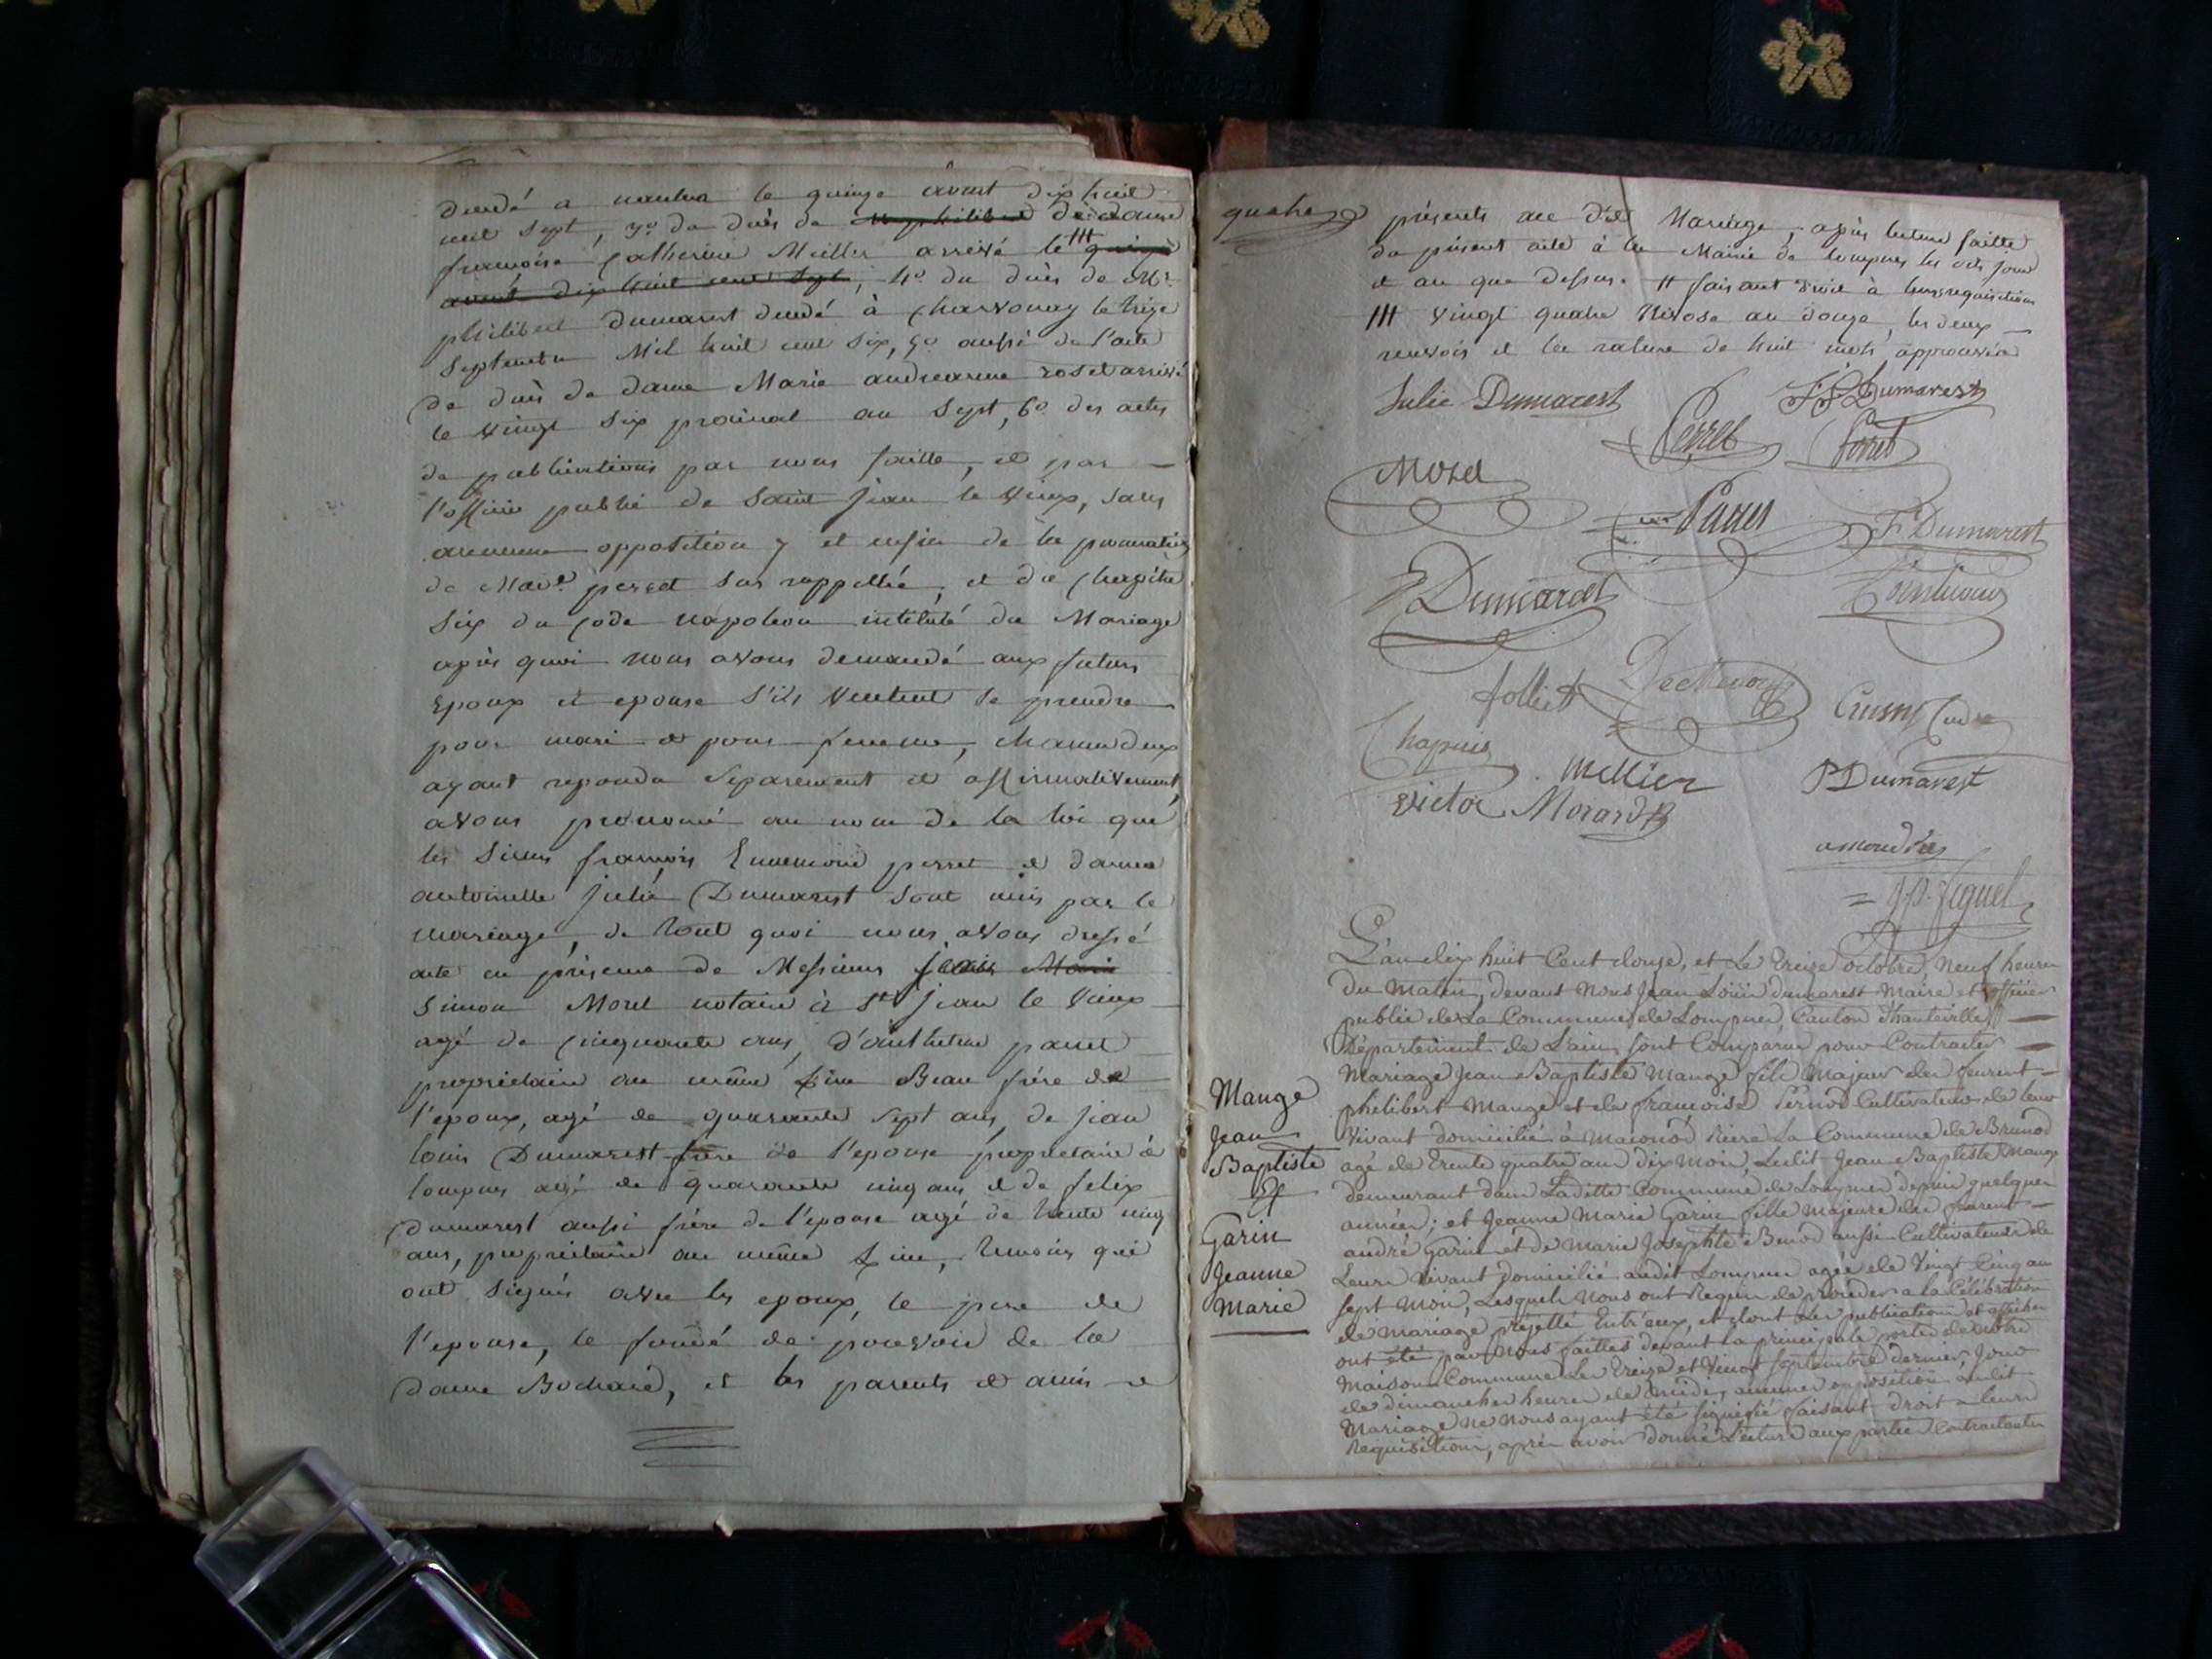 le quinze avant dix huit
cent sept, 3o du décès de dame
françoise Catherine Mellier arrivé le ###
4o du décès de Mr
philibert Dumarest décédé à Charvonay le treize
Septembre Mil huit cent six, 5o aussi de l'acte
de décès de dame Marie andréanne rosel arrivé
le vingt six prairial an Sept, 6o des actes
de publications par nous faitte, et par
l'officier public de Saint jean le vieux, sans
aucunne opposition, et enfin de la procuration
de Made perret sus rappellée, et du Chapitre
six du Code napoleon intitulé du Mariage
après quoi nous avons demandé aux futurs
Epoux et epouse s'ils veulent se prendre
pour mari et pour femme, chacun deux
ayant repondu Separement et affirmativement,
avons prononcé au nom de la loi que
les Sieurs françois Ennemond perret et dame
antoinette julie Dumarest sont unis par le
mariage, de tout quoi nous avons dressé
acte en présence de Messieurs
Simon Morel notaire à St jean le vieux
agé de Cinquante ans, d'anthelme
proprietaire au même lieu Beau frère de
l'epoux, agé de quarante Sept ans, de jean
louis Dumarest frère de l'epouse propriétaire à
lompnes agé de quarante cinq ans et de felix
Dumarest aussi frère de l'epouse agé de trente cinq
ans, propriétaire au même lieu, temoins qui
ont signés avec les epoux, le pere de
l'epouse, le fondé de pouvoir de la
dame Bochard, et les parents et amis
quatre
présents au dit Mariage, après lecture faitte
du présent acte à la Mairie de lompnes les dits jour
et an que dessus. # faisant droit à leurs requisitions
### vingt quatre Nivose an douze, les deux
renvois et la rature de huit mots approuvés
Julie Dumarest
Perret
Morel
F Dumarest
Dumarest
Folliet
Chapuis
Mellier
P Dumarest
Victor Morard
L'an dix huit Cent douze, et Le Treize octobre, Neuf heures
Du Matin, devant Nous Jean Loüis dumarest Maire et officier
public de La Commune de Lompnes, Canton d'hauteville
Département de L'ain, sont Comparus pour Contracter
Mariage Jean Baptiste Mange fils Majeur des feurent
philibert Mange et de françoise Pernod Cultivateurs de leur
Vivant domiciliés à Maconod Riere La Commune de Brenod
agé de Trente quatre ans dix Mois, Ledit Jean Baptiste Mange
demeurant dans Laditte Commune de Lompnes depuis quelques
années; et Jeanne Marie Garin fille Majeure des feurent
andré Garin et de Marie Josephte Benod aussi Cultivateurs de
Leurs Vivant domiciliés audit Lompnes agée de Vingt Cinq ans
sept Mois, Lesquels Nous ont Requis de proceder a la Célébration
de Mariage projetté Entr'eux, et dont Les publications et affiches
ont été par Nous faittes devant La principale porte de Notre
Maison Commune Le Treize et Vingt septembre dernier, Jour
de dimanche heures de Midi, aucunes opposition audit
Mariage ne Nous ayant été signifié faisant droit a leurs
Requisitions, après avoir donné Lecture aux parties Contractantes
Mange
Jean
Baptiste
Et
Garin
Jeanne
Marie